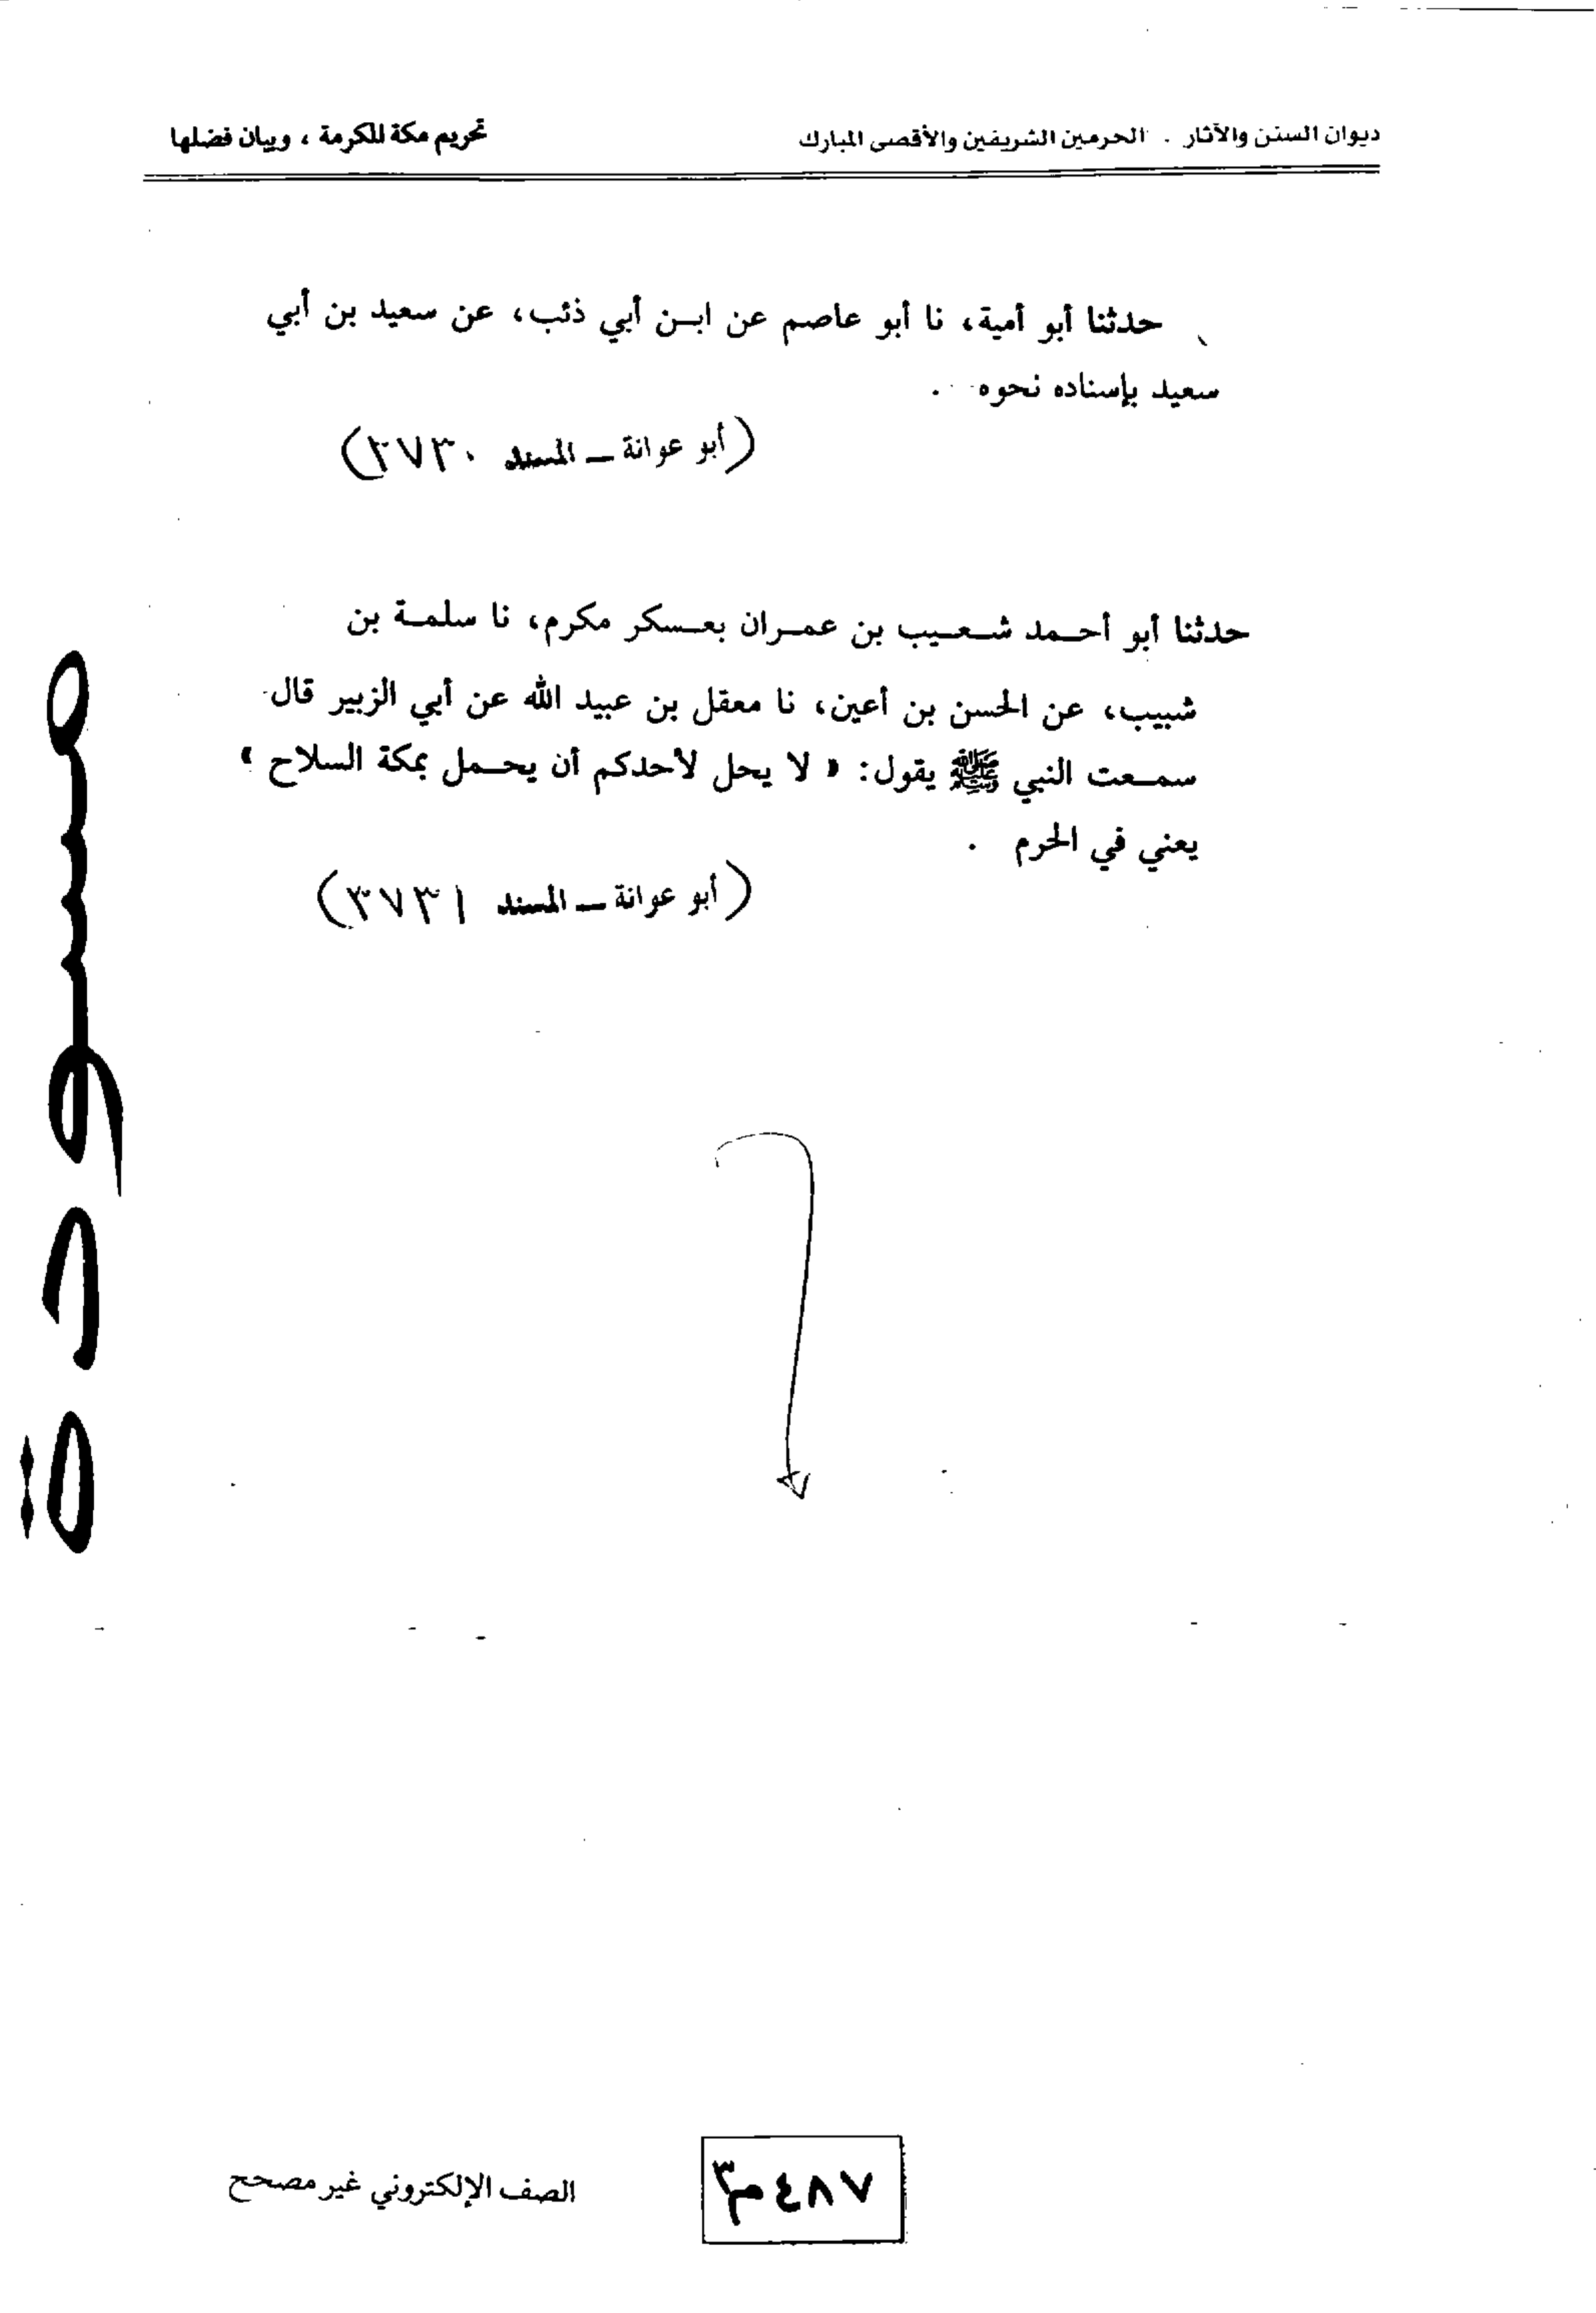 ديوان السنن والآثار . الحرمين الشريفين والأقصى المبارك
تحريم مكة المكرمة ، وبيان فضلها
حدثنا أبو أمية، نا أبو عاصم عن ابن أبي ذئب، عن سعيد بن أبي
سعيد بإسناده نحوه .
(أبو عوانة – المسند ٣٧٣٠)
حدثنا أبو أحمد شعيب بن عمران بعسكر مكرم، نا سلمة بن
شبيب، عن الحسن بن أعين، نا معقل بن عبيد الله عن أبي الزبير قال
سمعت النبي ﷺ يقول: « لا يحل لأحدكم أن يحمل بمكة السلاح »
يعني في الحرم .
(أبو عوانة – المسند ٣٧٣١)
مسودة
٧٨٤م٣
الصف الإلكتروني غير مصحح